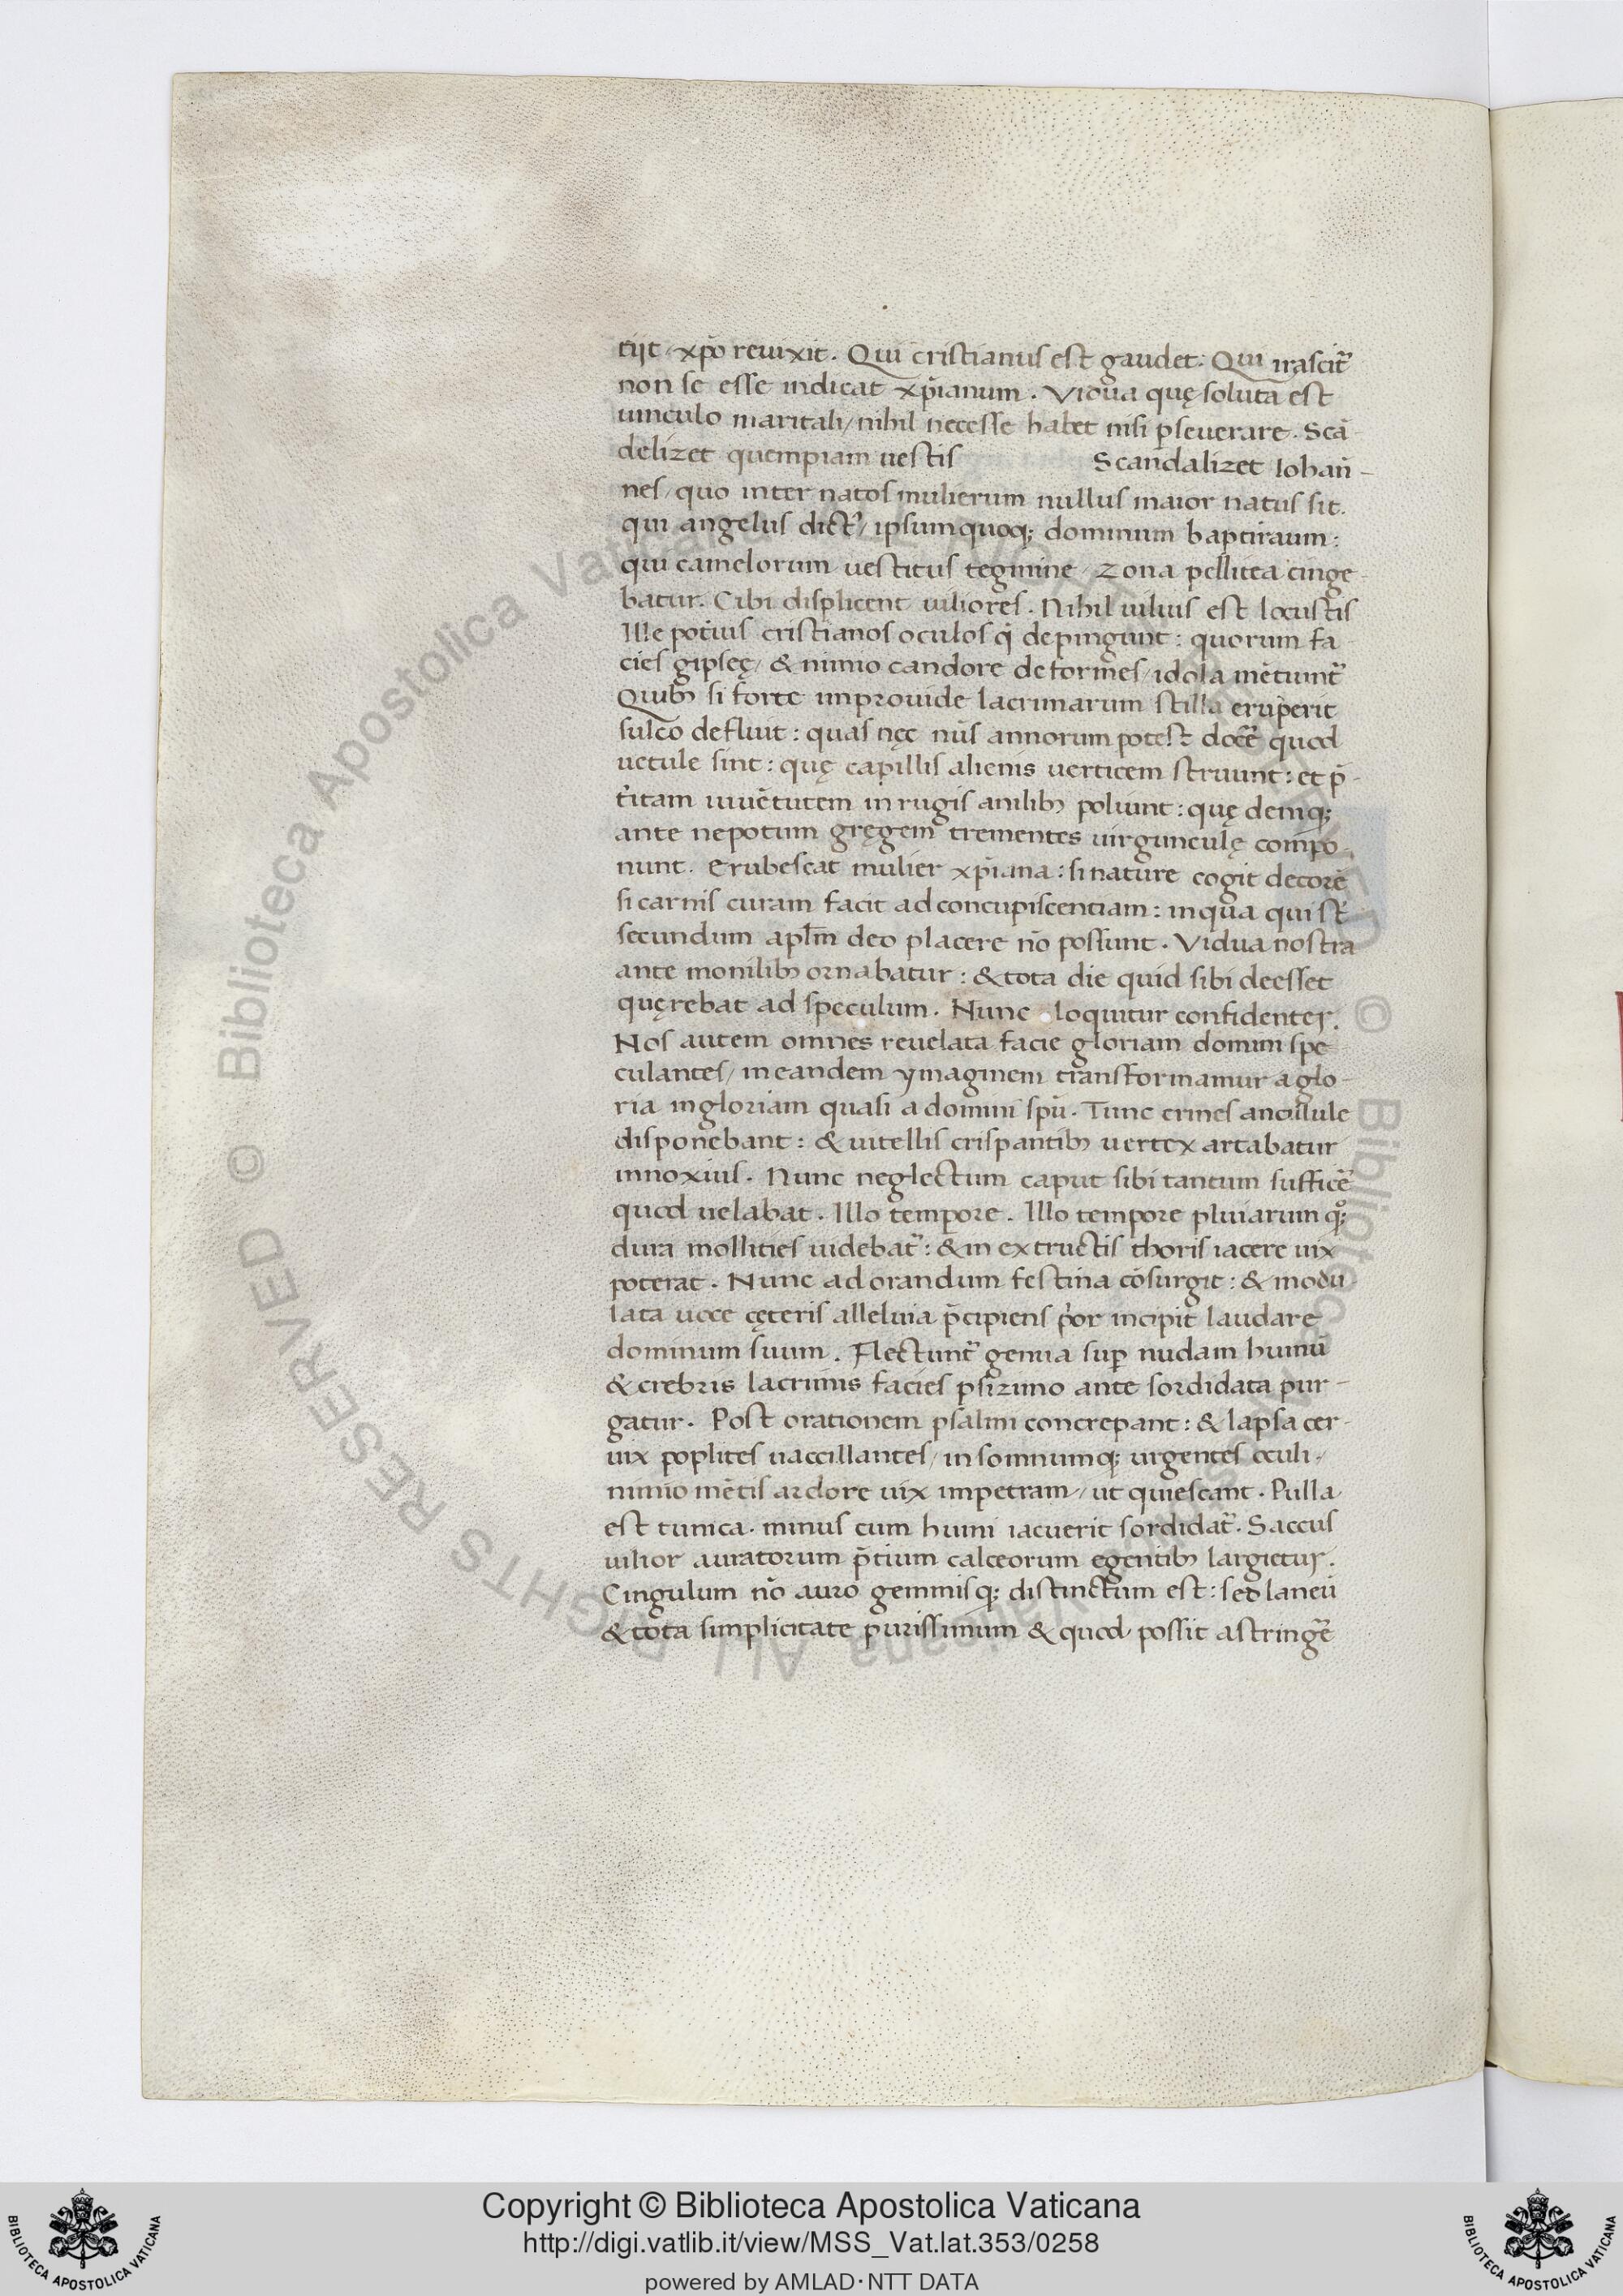 tijt / xp̄o reuixit. Qui cristianus est gaudet. Qui irascit᷑
non se esse indicat xp̄ianum. Vidua quę soluta est
uinculo maritali / nihil necesse habet nisi ꝑseuerare. Scā-
delizet quempiam uestis Scandalizet Iohan̄-
nes / quo inter natos mulierum nullus maior natus sit.
qui angelus dict᷑ / ipsum quoqꝫ dominum baptizauit:
qui camelorum uestitus tegmine / zona pellicea cinge-
batur. Cibi displicent uiliores. Nihil uilius est locustis
Ille potius cristianos oculos q̄ depingunt: quorum fa
cies gipseę / & nimio candore deformes / idola mētiunt᷑
Quibꝫ si forte improuide lacrimarum stilla eruperit
sulco defluit: quas nęc nūs annorum potest docē᷑ quod
uetule sint: quę capillis alienis uerticem struunt: et p̄-
t̄itam iuuētutem in rugis anilibꝫ poliunt: quę deniqꝫ
ante nepotum gręgem trementes uirgunculę compo-
nunt. Erubescat mulier xp̄iana: si nature cogit decorē
si carnis curam facit ad concupiscentiam: in qua qui st̄
secundum apl̄m deo placere nō possunt. Vidua nostra
ante monilibꝫ ornabatur: & tota die quid sibi deesset
quęrebat ad speculum. Nunc loquitur confidenter.
Nos autem omnes reuelata facie gloriam domini spe
culantes / in eandem ymaginem transformamur a glo-
ria in gloriam quasi a domini spū. Tunc crines ancillule
disponebant: & uitellis crispantibꝫ uertex artabatur
innoxius. Nunc neglectum caput sibi tantum sufficē᷑
quod uelabat. Illo tempore. Illo tempore pluiarum qͦꝫ
dura mollities uidebat᷑: & in extructis thoris iacere uix
poterat. Nunc ad orandum festina cōsurgit: & modu
lata uoce cęteris alleluia p̄cipiens p̓or incipit laudare
dominum suum. Flectunt᷑ genua suꝑ nudam humū
& crebris lacrimis facies psizimo ante sordidata pur-
gatur. Post orationem psalmi concrepant: & lapsa cer-
uix poplites uaccillantes / in somnumqꝫ urgentes oculi /
nimio mētis ardore uix impetram / ut quiescant. Pulla
est tunica. minus cum humi iacuerit sordidat᷑. Saccus
uilior auratorum p̄tium calceorum egentibꝫ largietur.
Cingulum nō auro gemmisqꝫ distinctum est: sed laneū
& tota simplicitate purissimum & quod possit astringē᷑
Copyright © Biblioteca Apostolica Vaticana
http://digi.vatlib.it/view/MSS_Vat.lat.353/0258
powered by AMLAD·NTT DATA